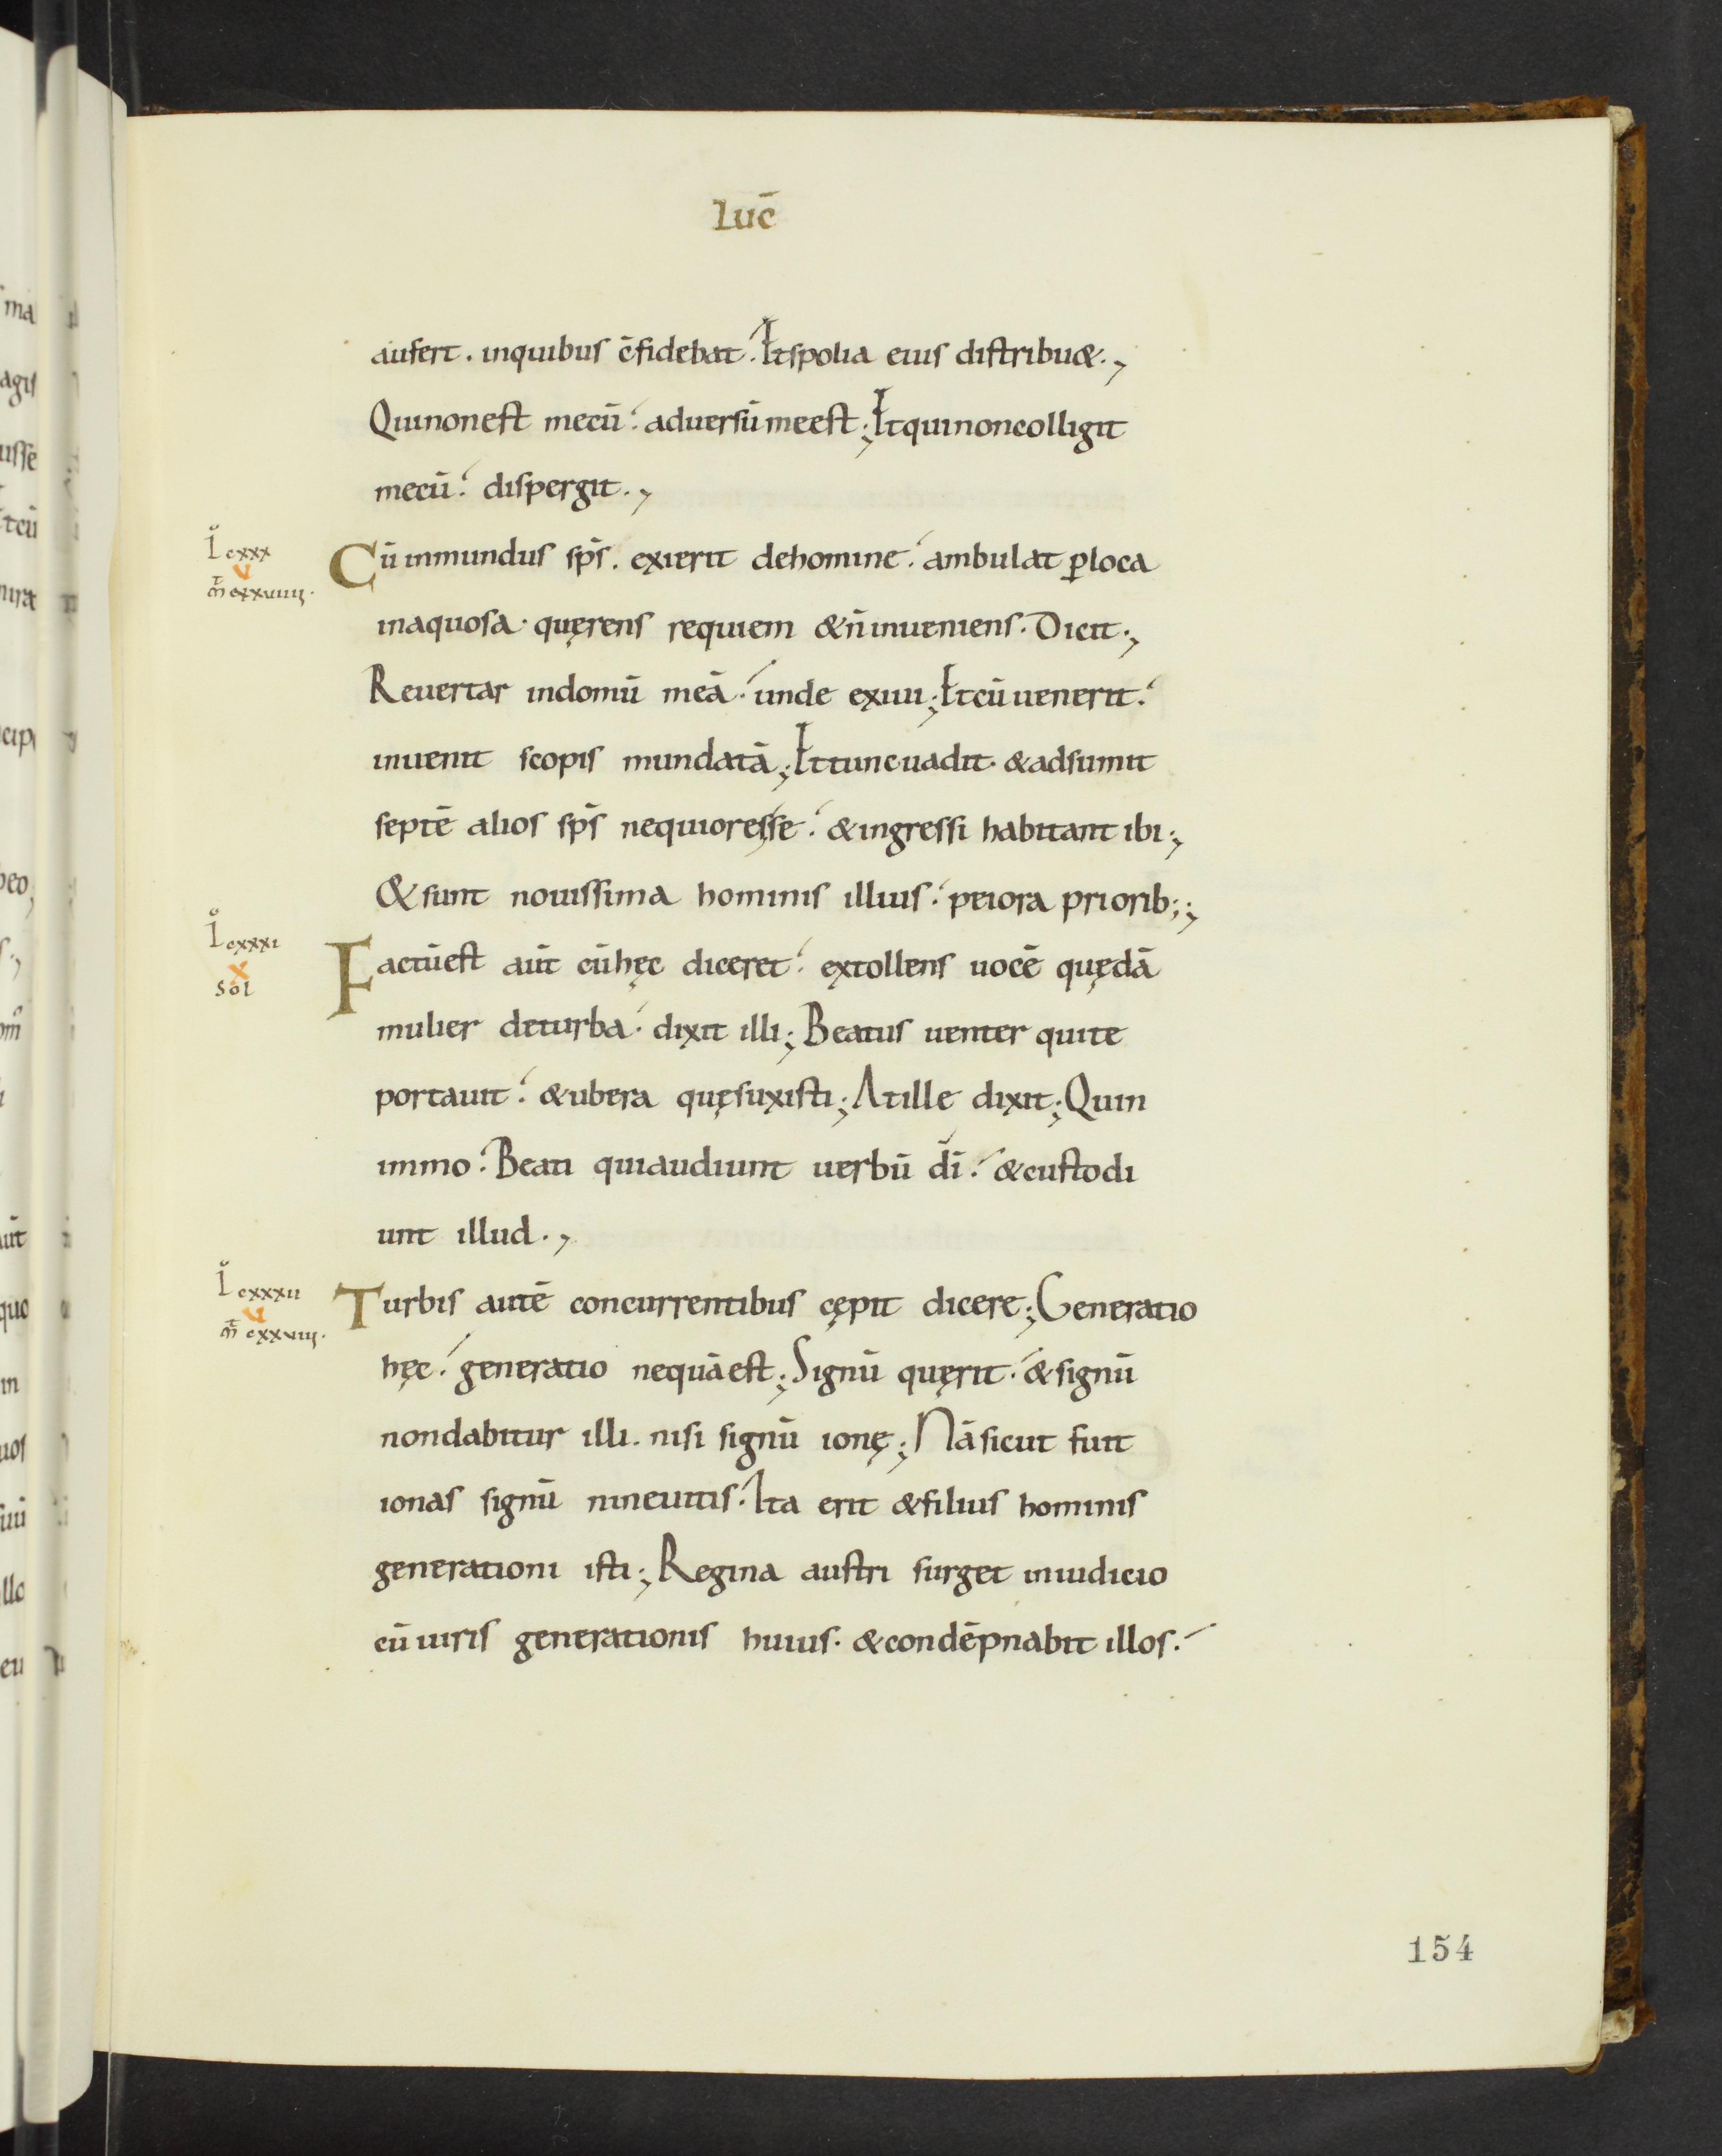 lucͨ̄
aufert. inquibus c̄fidebat. Et spolia eius distribu&.,
Quinonest mecū. aduersūmeest; Etquinoncolligit
mecū. dispergit.,
L cxxx
V
m̄t cxxviiii.
Cū inmundus sp̄s. exierit dehomine. ambulat ꝑloca
inaquosa. quęrens requiem &n̄inueniens. Dicit.,
Reuertar indomū meā. unde exiui; Etcūuenerit.
inuenit scopis mundatā; Ettuncuadit. &adsumit
septē alios sp̄s nequioressę. &ingressi habitant ibi;
&sunt nouissima hominis illius. peiora priorib;;
L cxxxi
X
sol
Factūest aūt cūhęc diceret. extollens uocē quędā
mulier deturba. dixit illi; Beatus uenter quite
portauit. &ubera quęsuxisti; Atille dixit; Quin
immo. Beati quiaudiunt uerbū dī. &custodi
unt illud.,
L cxxxii
V
m̄t cxxviii.
Turbis autē concurrentibus cępit dicere; Generatio
hęc. generatio nequāest; Signū quęrit. &signū
nondabitur illi. nisi signū ionę; Nāsicut fuit
ionas signū nineuitis. Ita erit &filius hominis
generationi isti; Regina austri surget iniudicio
cūuiris generationis huius. &condēpnabit illos.
154